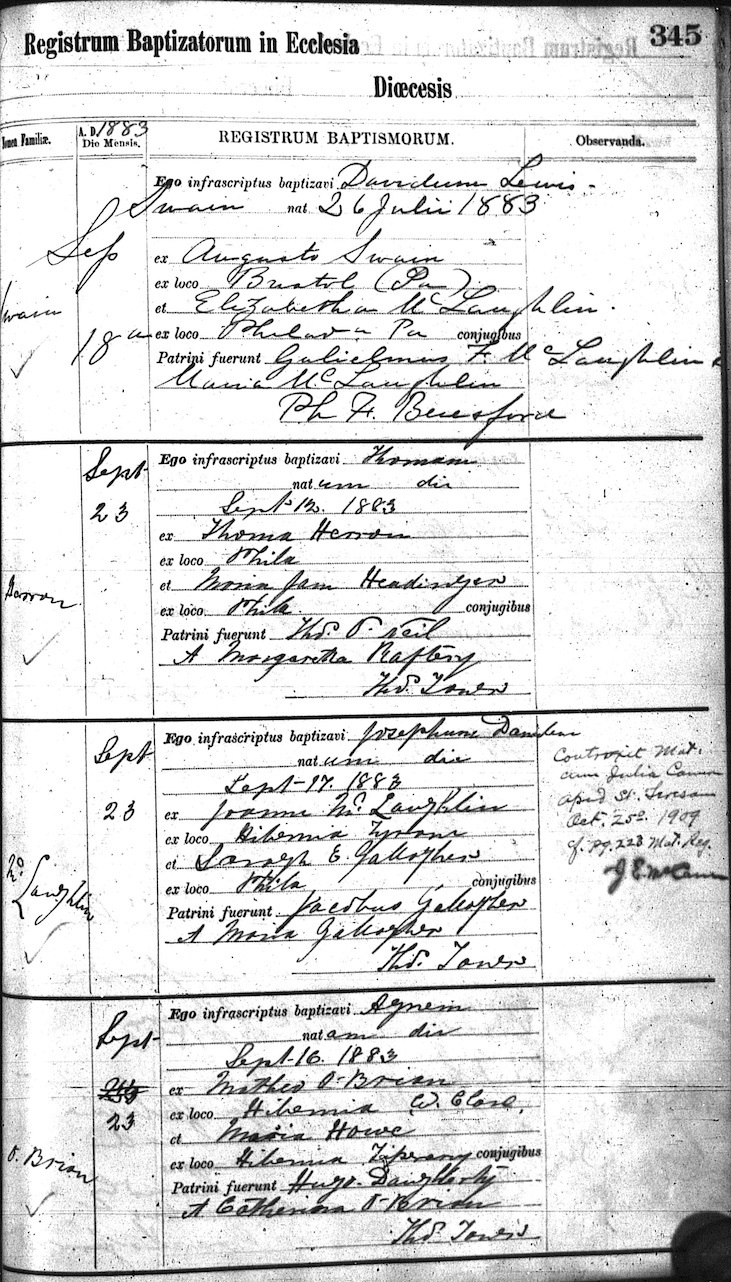 345
Registrum Baptizatorum in Ecclesia
Diœcesis
Nomen Familiæ.
A. D. 1883
Die Mensis.
REGISTRUM BAPTISMORUM.
Observanda.
Swain
Sep
18a
Ego infrascriptus baptizavi Davidum Lewis
Swain nat 26 Julii 1883
ex Augusto Swain
ex loco Bristol (Pa)
et Elizabetha McLaughlin.
ex loco Philada Pa conjugibus
Patrini fuerunt Gulielmus F. McLaughlin &
Maria McLaughlin
Ph F. Beresford
Herron
Sept
23
Ego infrascriptus baptizavi Thomam
natum die
Sept 12. 1883
ex Thoma Herron
ex loco Phila
et Maria Jam Headinger
ex loco Phila. conjugibus
Patrini fuerunt Thos. O'Neil
A Margaretha Raftery
Thos. Tower
Mc Laughlin
Sept
23
Ego infrascriptus baptizavi Josephum
natum die
Sept-17. 1883
ex Joanne McLaughlin
ex loco Hibernia Tyrone
et Saragh E. Gallagher
ex loco Phila conjugibus
Patrini fuerunt Jacobus Gallagher
A Maria Gallagher
Thos. Tower
Contraxit Mat.
cum Julia
apud St. Teresam
Oct. 25o. 1909
cf. pg. 223 Mat. Reg.
J. E. McCann
O'Brian
Sept
23
Ego infrascriptus baptizavi Agnem
natam die
Sept-16. 1883
ex Matheo O'Brian
ex loco Hibernia Co. Clare,
et Maria Howe
ex loco Hibernia Tiperary conjugibus
Patrini fuerunt Hugo Daugherty
A Catherina O'Brian
Thos. Tower